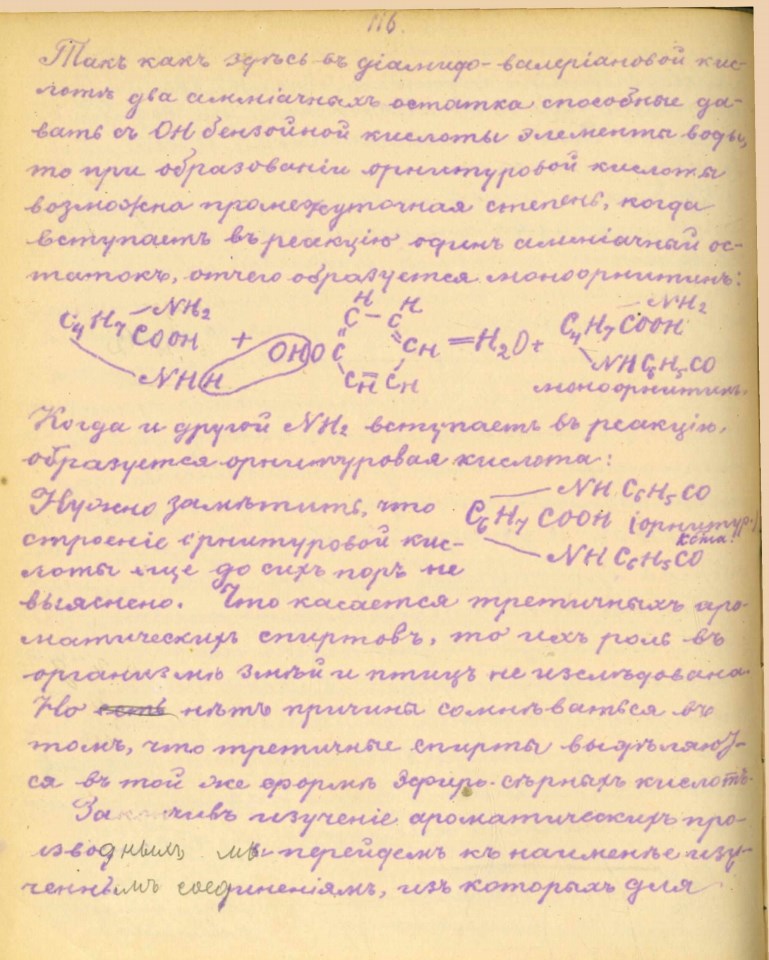 116.
Такъ какъ здѣсь въ діамидо-валеріановой кис-
лотѣ два амміачныхъ остатка способные да-
вать съ OH бензойной кислоты элементы воды,
то при образованіи орнитуровой кислоты
возможна промежуточная степень, когда
вступаетъ въ реакцію одинъ амміачный ос-
татокъ, отчего образуется моноорнитинъ:
C4H7 NH2 COOH NHH + OHO C C H – C H CH CH CH = H2O + C4H7 NH2 COOH NHC6H5CO
моноорнитинъ.
Когда и другой NH2 вступаетъ въ реакцію,
образуется орнитуровая кислота:
Нужно замѣтить, что
строеніе орнитуровой кис-
лоты еще до сихъ поръ не
NH C6H5CO
C6H7 COOH (орнитур.
кота.
NH C6H5CO
выяснено. Что касается третичныхъ аро-
матическихъ спиртовъ, то ихъ роль въ
организмѣ змѣй и птицъ не изслѣдована.
Но есть нѣтъ причины сомнѣваться въ
томъ, что третичные спирты выдѣляют-
ся въ той же формѣ эфиро-сѣрныхъ кислотъ.
Закончивъ изученіе ароматическихъ про-
изводнымъ мы перейдемъ къ наименѣе изу-
ченнымъ соединеніямъ, изъ которыхъ для